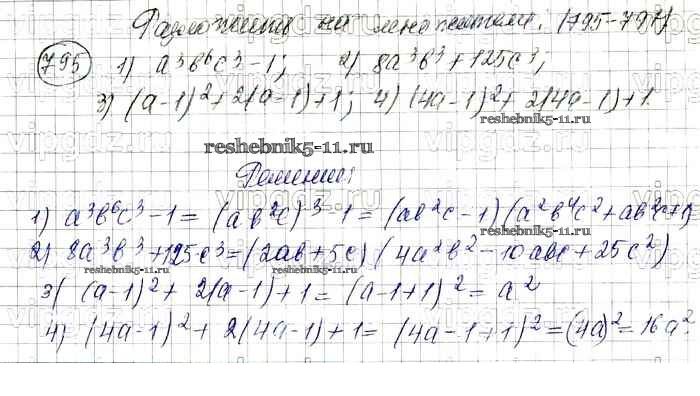 Разложить на множители. (795-797)
795 1) a³b⁶c³-1; 2) 8a³b³+125c³;
3) (a-1)²+2(a-1)+1; 4) (4a-1)²+2(4a-1)+1.
reshebnik5-11.ru
reshebnik5-11.ru
Решение:
1) a³b⁶c³-1=(ab²c)³-1=(ab²c-1)(a²b⁴c²+ab²c+1);
2) 8a³b³+125c³=(2ab+5c)(4a²b²-10abc+25c²)
reshebnik5-11.ru
reshebnik5-11.ru
3) (a-1)²+2(a-1)+1=(a-1+1)²=a²
4) (4a-1)²+2(4a-1)+1=(4a-1+1)²=(4a)²=16a².